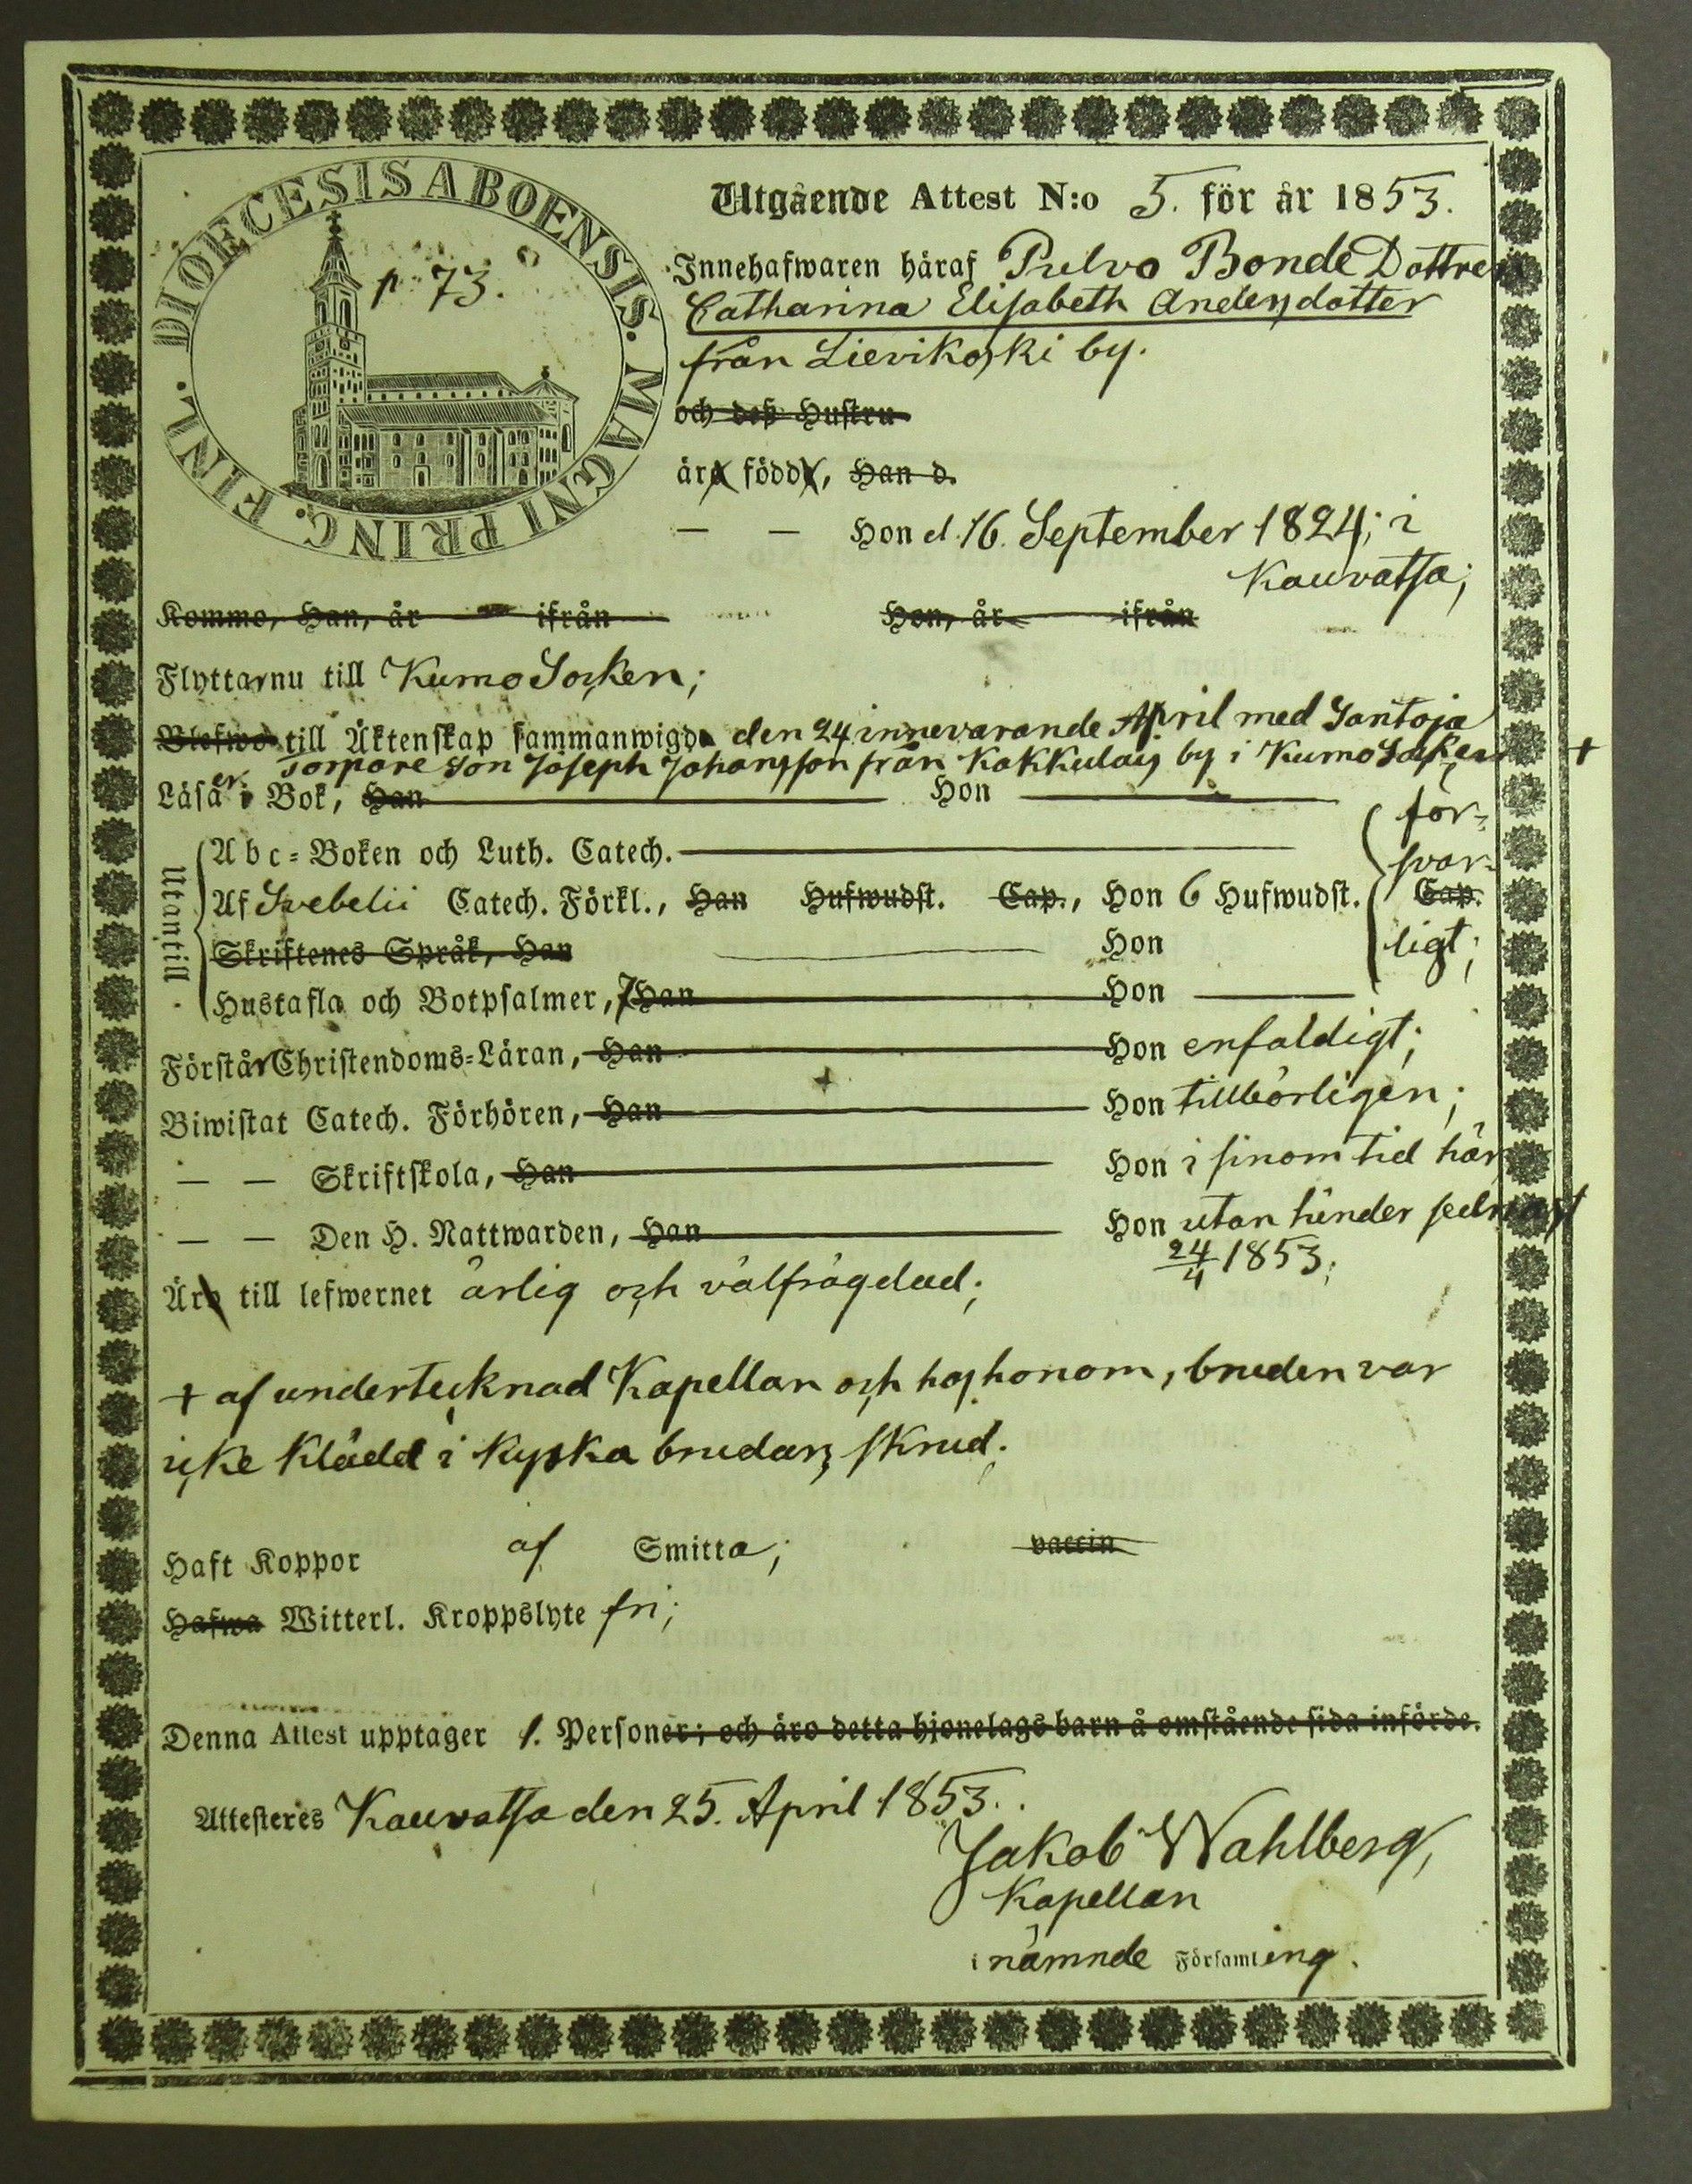 DIOECESIS ABOENSIS. MAGNI PRINC. FINL.
p. 73.
Utgående Attest N:o 5. för år 1853.
Innehafwaren häraf Pulvo Bonde Dottren
Catharina Elisabeth Andersdotter
från Lievikoski by.
och deß Hustru
äro födde, Han d.
— — Hon d. 16. September 1824; i
Kauvatsa;
Komme, Han, år ifrån Hon, år ifrån
Flyttar nu till Kumo Socken;
Blefwo till Äktenskap sammanwigde den 24 innevarande April med Santoja
Torpare Son Joseph Johansson från Kakkulais by i Kumo Socken +
Läser i Bok, Han Hon
för-
Utantill
Abc-Boken och Luth. Catech.
svar-
Af Svebelii Catech. Förkl., Han Hufwudst. Cap., Hon 6 Hufwudst. Cap.
Skriftenes Språk, Han Hon ligt;
Hustafla och Botpsalmer, 7 Han Hon
Förstår Christendoms-Läran, Han Hon enfaldigt;
Biwistat Catech. Förhören, Han Hon tillbörligen;
— — Skriftskola, Han Hon i sinom tid här
— — Den H. Nattwarden, Han Hon utan hinder sednast
24/4 1853;
Äro till lefwernet ärlig och välfrägdad;
+ af undertecknad Kapellan och hos honom, bruden var
icke klädd i kyska brudars skrud.
Haft Koppor af Smitta; vaccin
Hafwa Witterl. Kroppslyte fri;
Denna Attest upptager 1. Personer; och äro detta hjonelags barn å omstående sida införde.
Attesteres Kauvatsa den 25. April 1853.
Jakob Wahlberg,
Kapellan
i nämnde Församling.